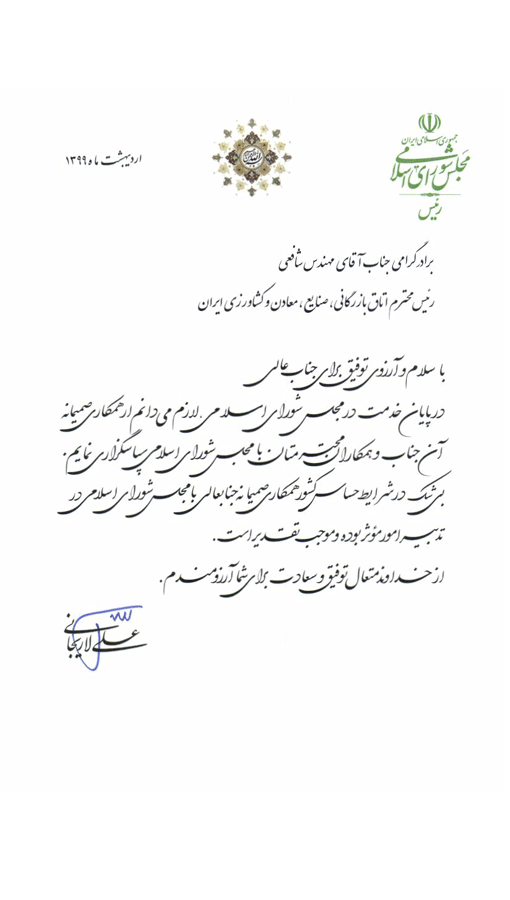 جمهوری اسلامی ایران
مجلس شورای اسلامی
رئیس
اردیبهشت ماه ۱۳۹۹
برادر گرامی جناب آقای مهندس شافعی
رئیس محترم اتاق بازرگانی، صنایع، معادن و کشاورزی ایران
با سلام و آرزوی توفیق برای جناب عالی
در پایان خدمت در مجلس شورای اسلامی، لازم می دانم از همکاری صمیمانه
آن جناب و همکاران محترمتان با مجلس شورای اسلامی سپاسگزاری نمایم.
بی شک در شرایط حساس کشور همکاری صمیمانه جنابعالی با مجلس شورای اسلامی در
تدبیر امور مؤثر بوده و موجب تقدیر است.
از خداوند متعال توفیق و سعادت برای شما آرزومندم.
علی لاریجانی